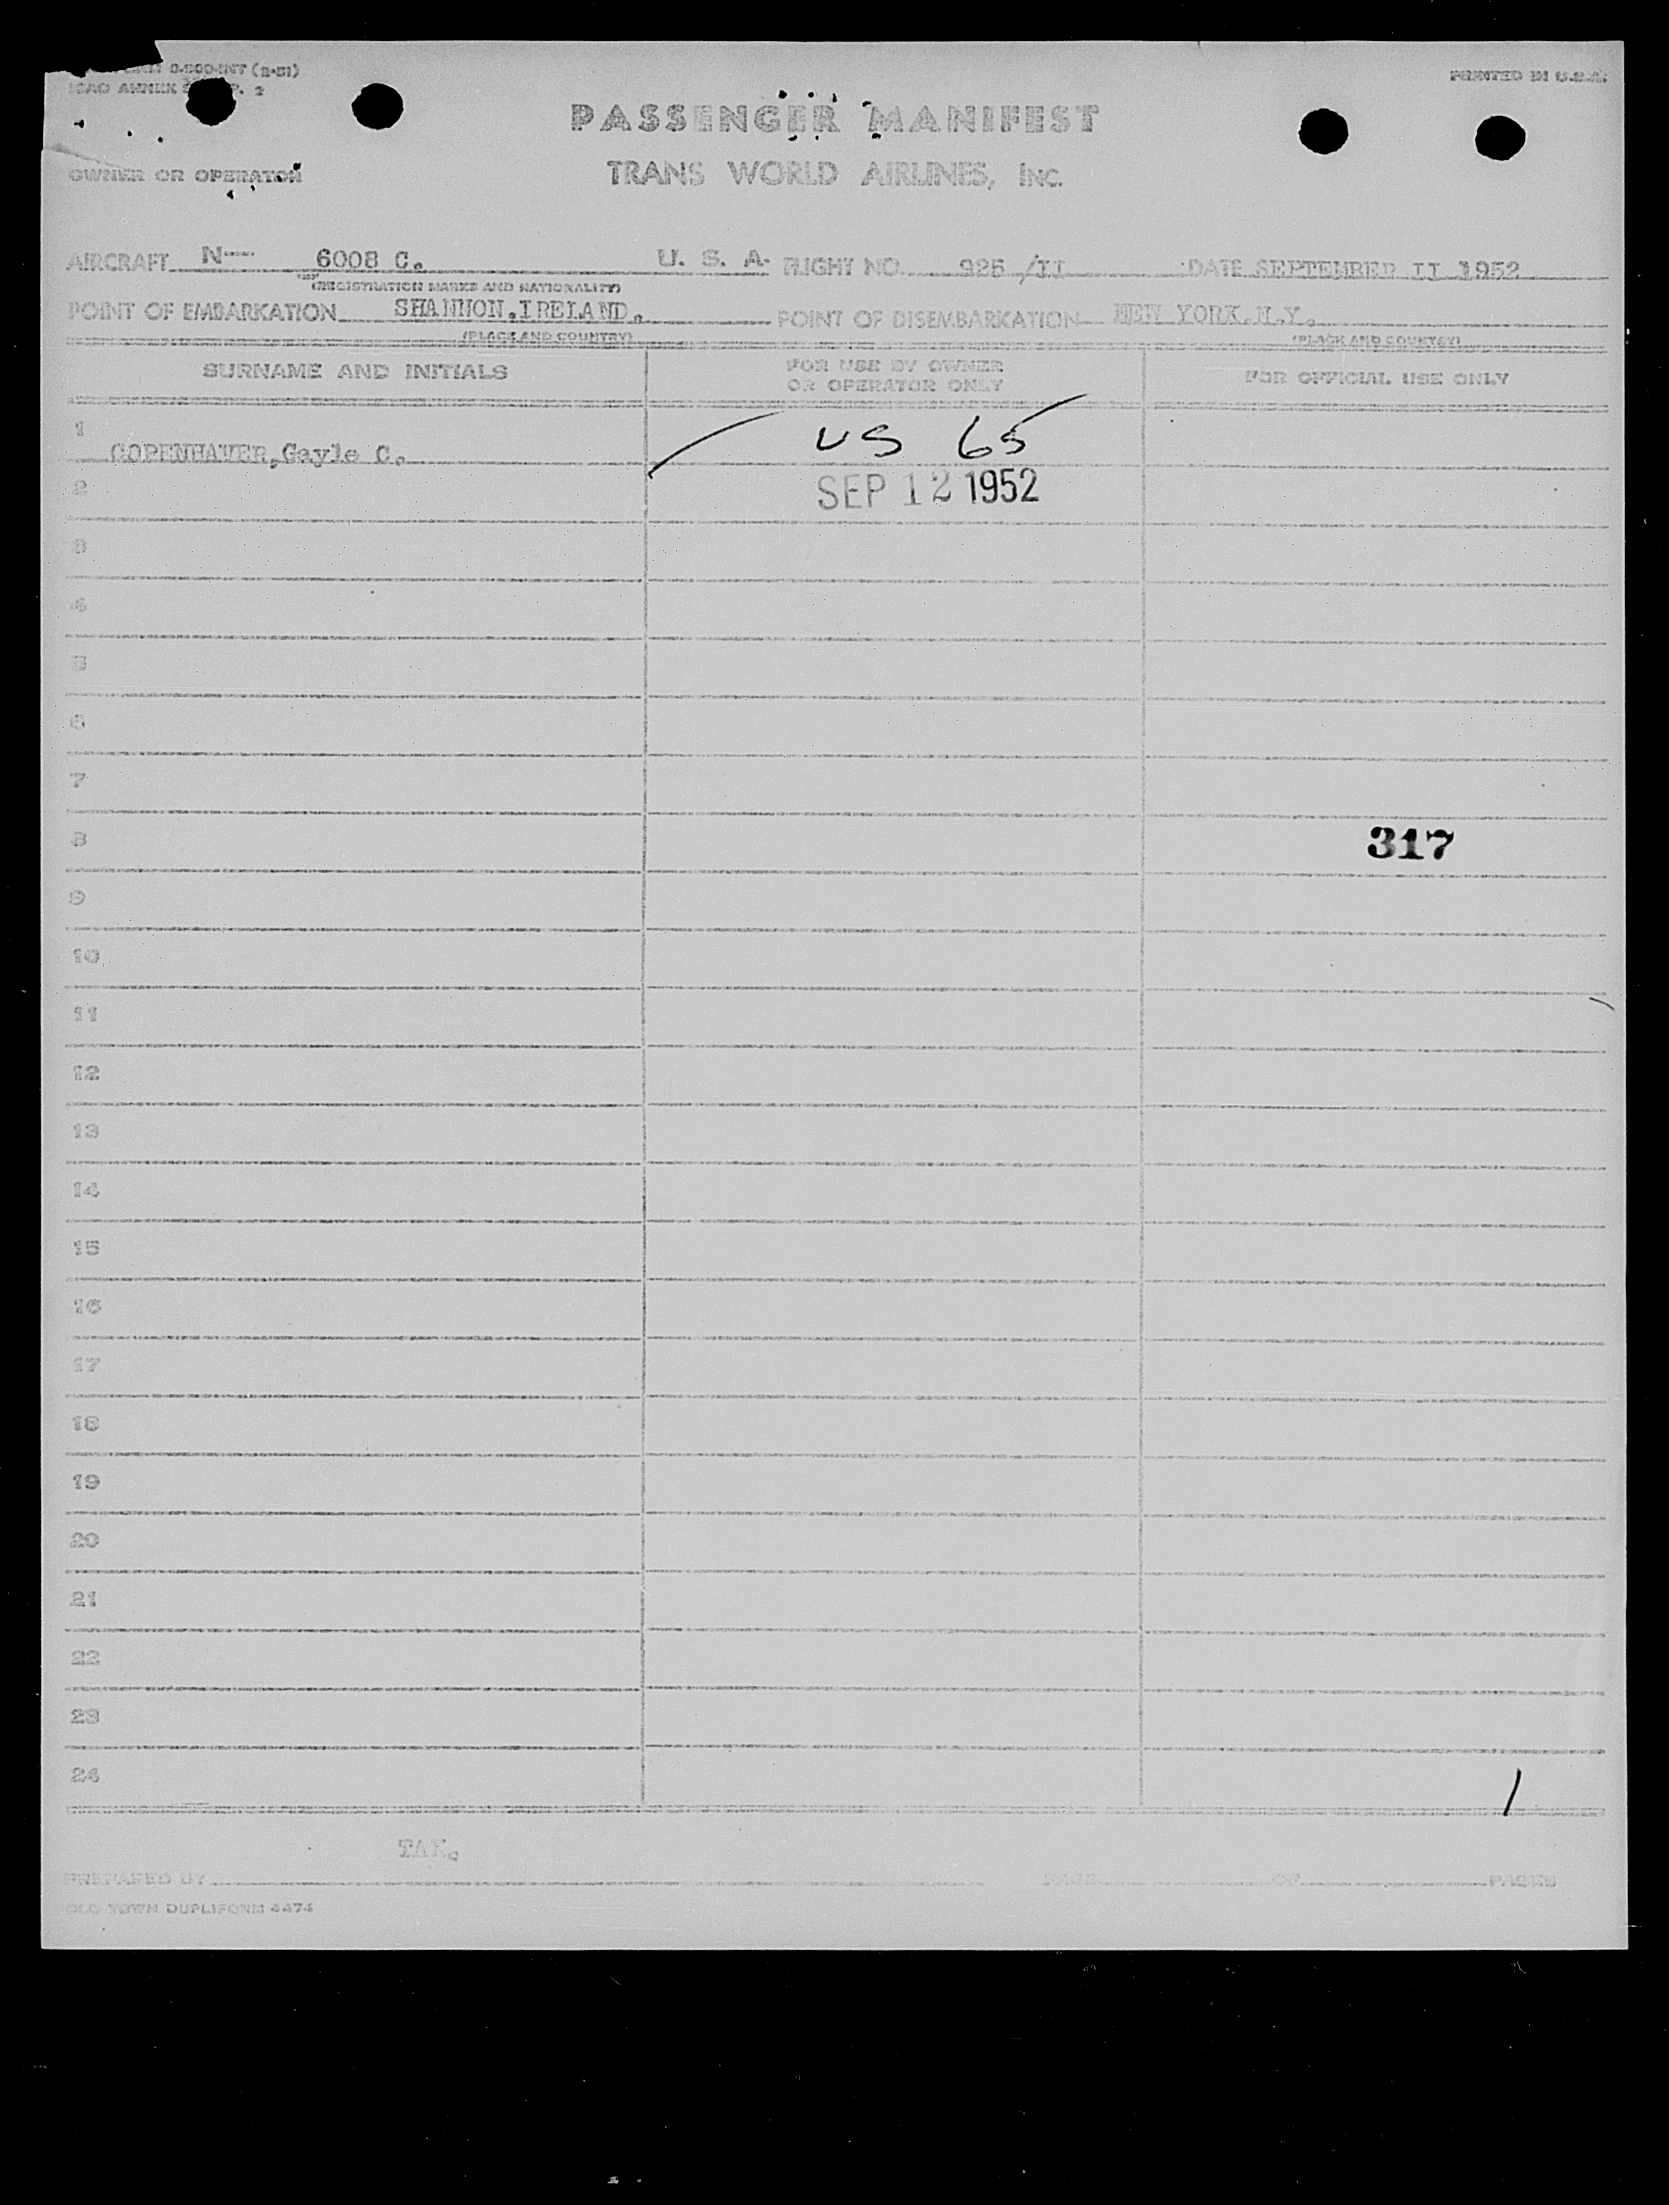 0-800-INT (2-51)
PRINTED IN U.S.A.
ICAO ANNEX 2
PASSENGER MANIFEST
OWNER OR OPERATOR
TRANS WORLD AIRLINES, INC.
AIRCRAFT N— 6008 C. U. S. A. FLIGHT NO. 925 /II DATE SEPTEMBER II 1952
(REGISTRATION MARKS AND NATIONALITY)
POINT OF EMBARKATION SHANNON,IRELAND. POINT OF DISEMBARKATION NEW YORK,N.Y.
(PLACE AND COUNTRY) (PLACE AND COUNTRY)
SURNAME AND INITIALS FOR USE BY OWNER OR OPERATOR ONLY FOR OFFICIAL USE ONLY
1 COPENHAVER,Gayle C. US 65
2 SEP 12 1952
3
4
5
6
7
8 317
9
10
11
12
13
14
15
16
17
18
19
20
21
22
23
24 /
PREPARED BY PAGE OF PAGES
OLD TOWN DUPLIFORM 4474